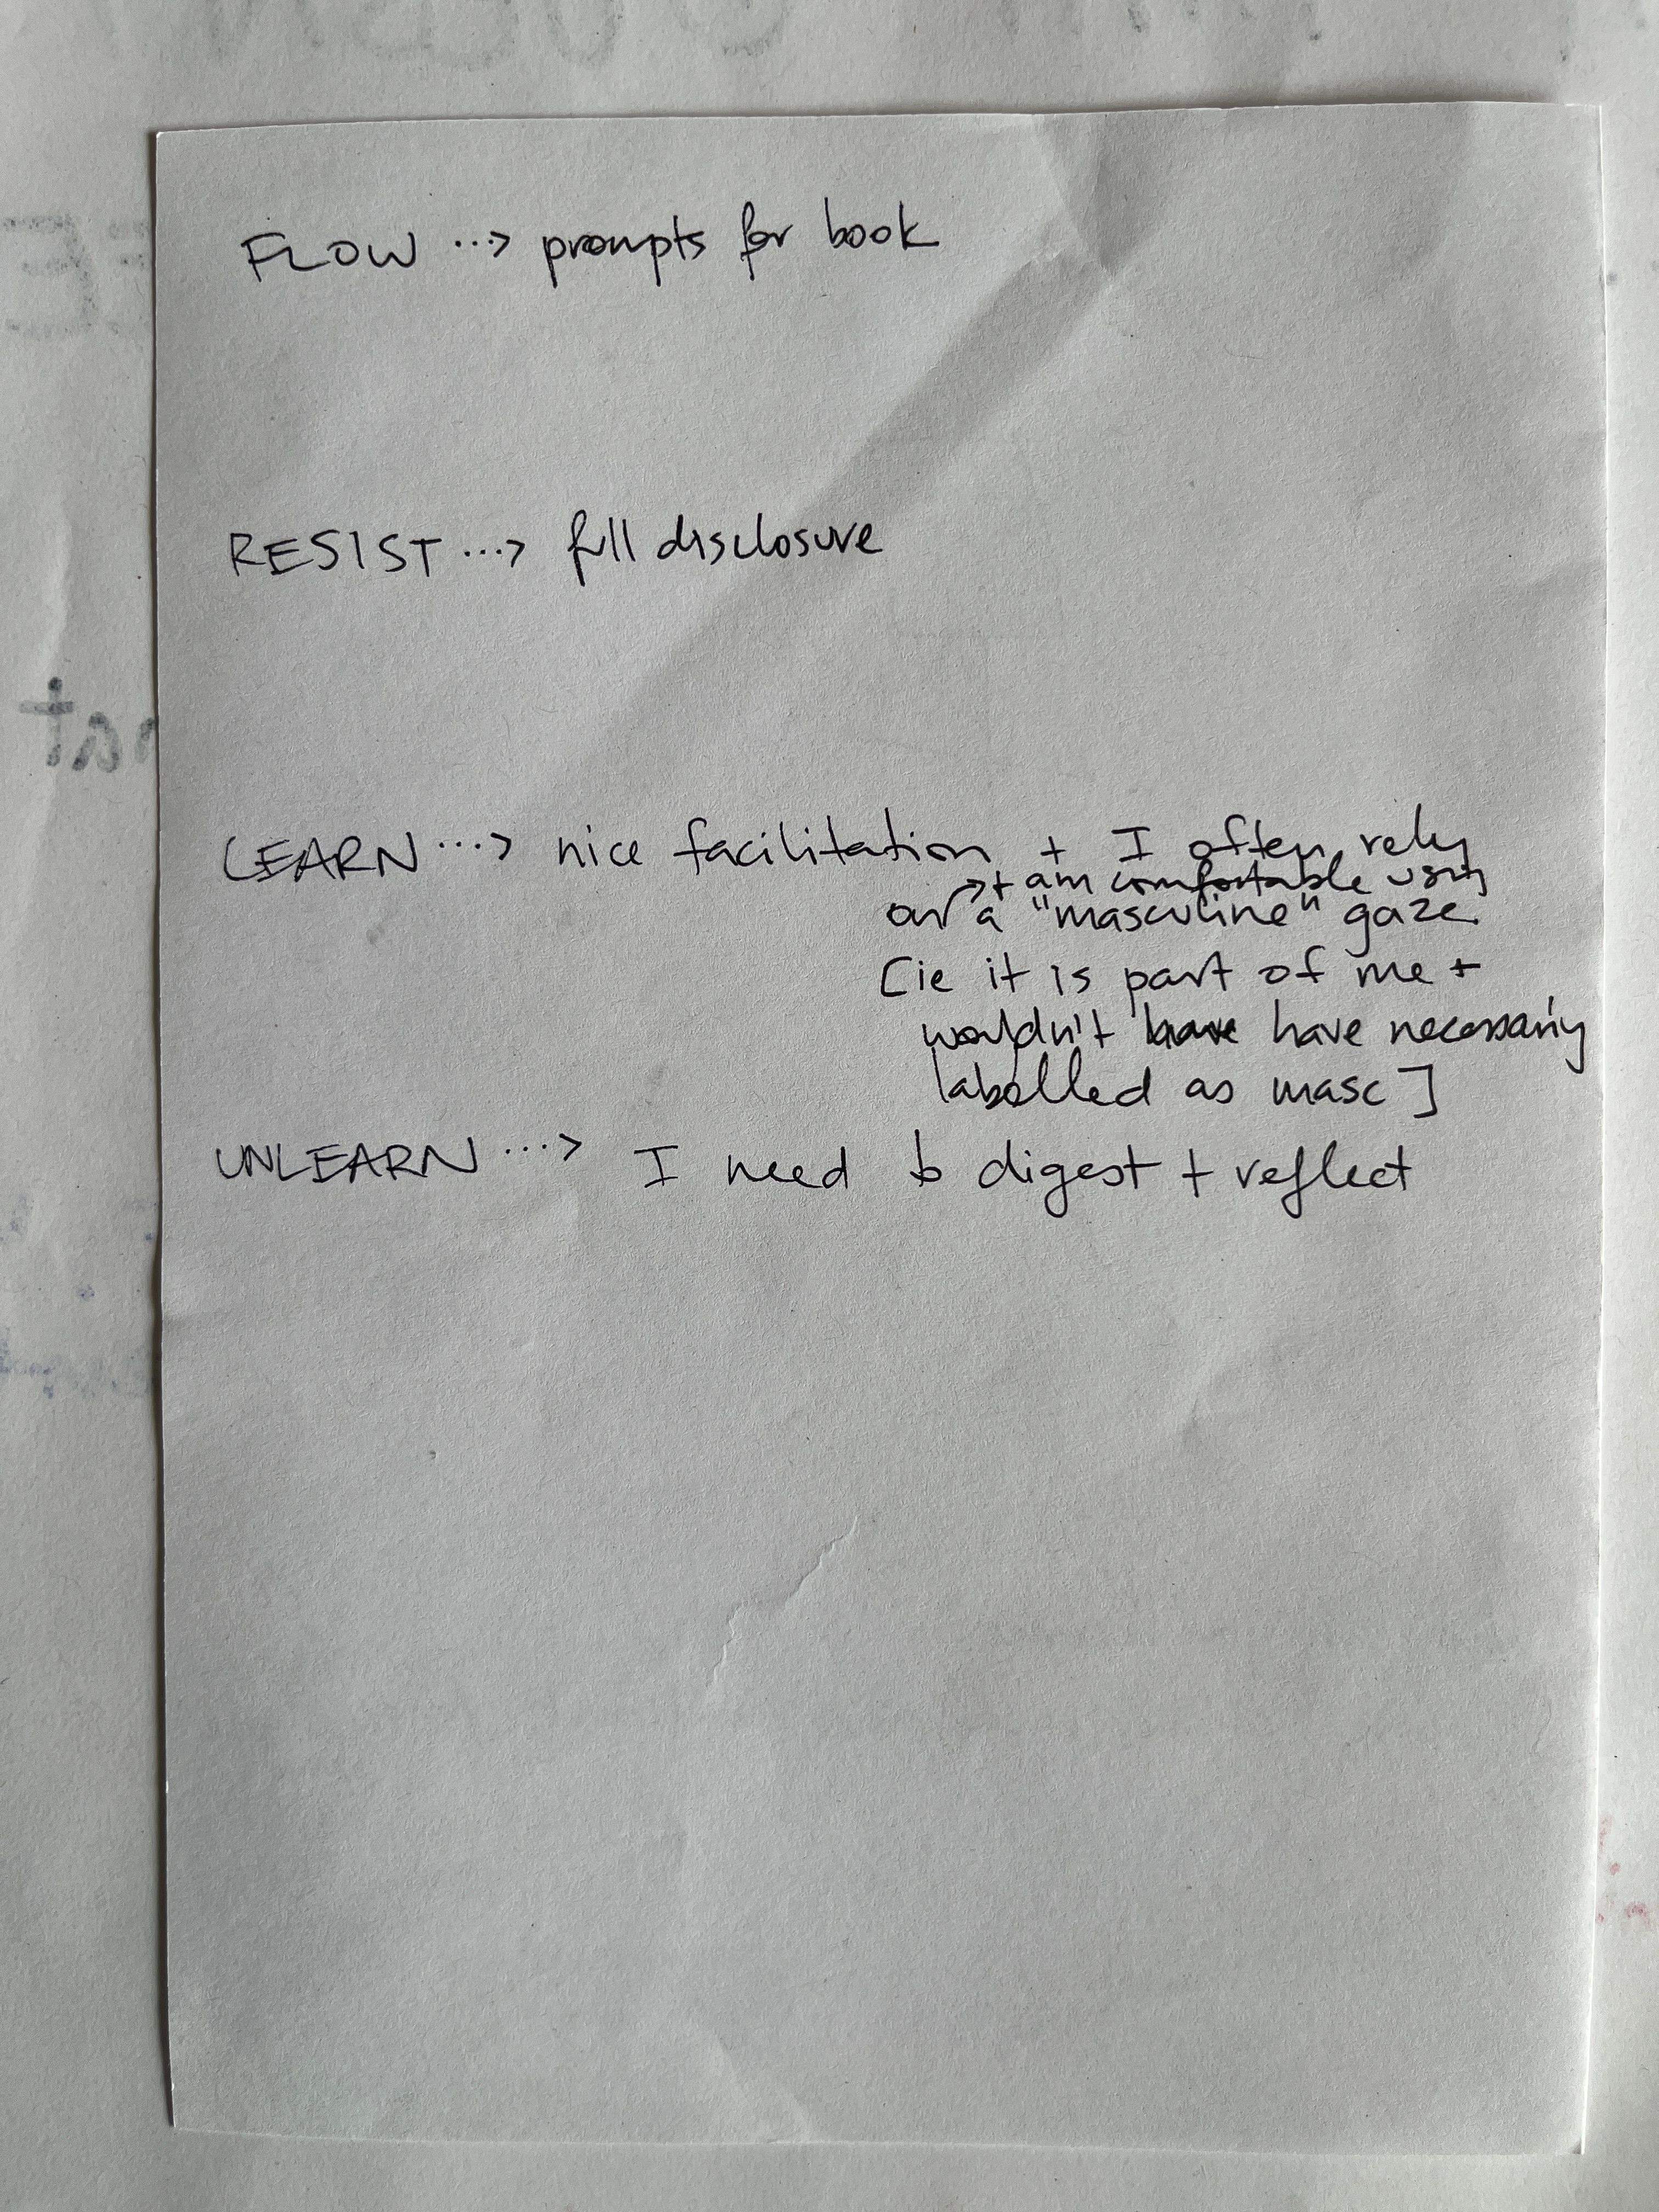 FLOW ...> prompts for book
RESIST ...> full disclosure
LEARN ...> nice facilitation + I often rely
+ am comfortable using
on a "masculine" gaze
[ie it is part of me +
wouldn't have have necessarily
labelled as masc]
UNLEARN ...> I need to digest + reflect